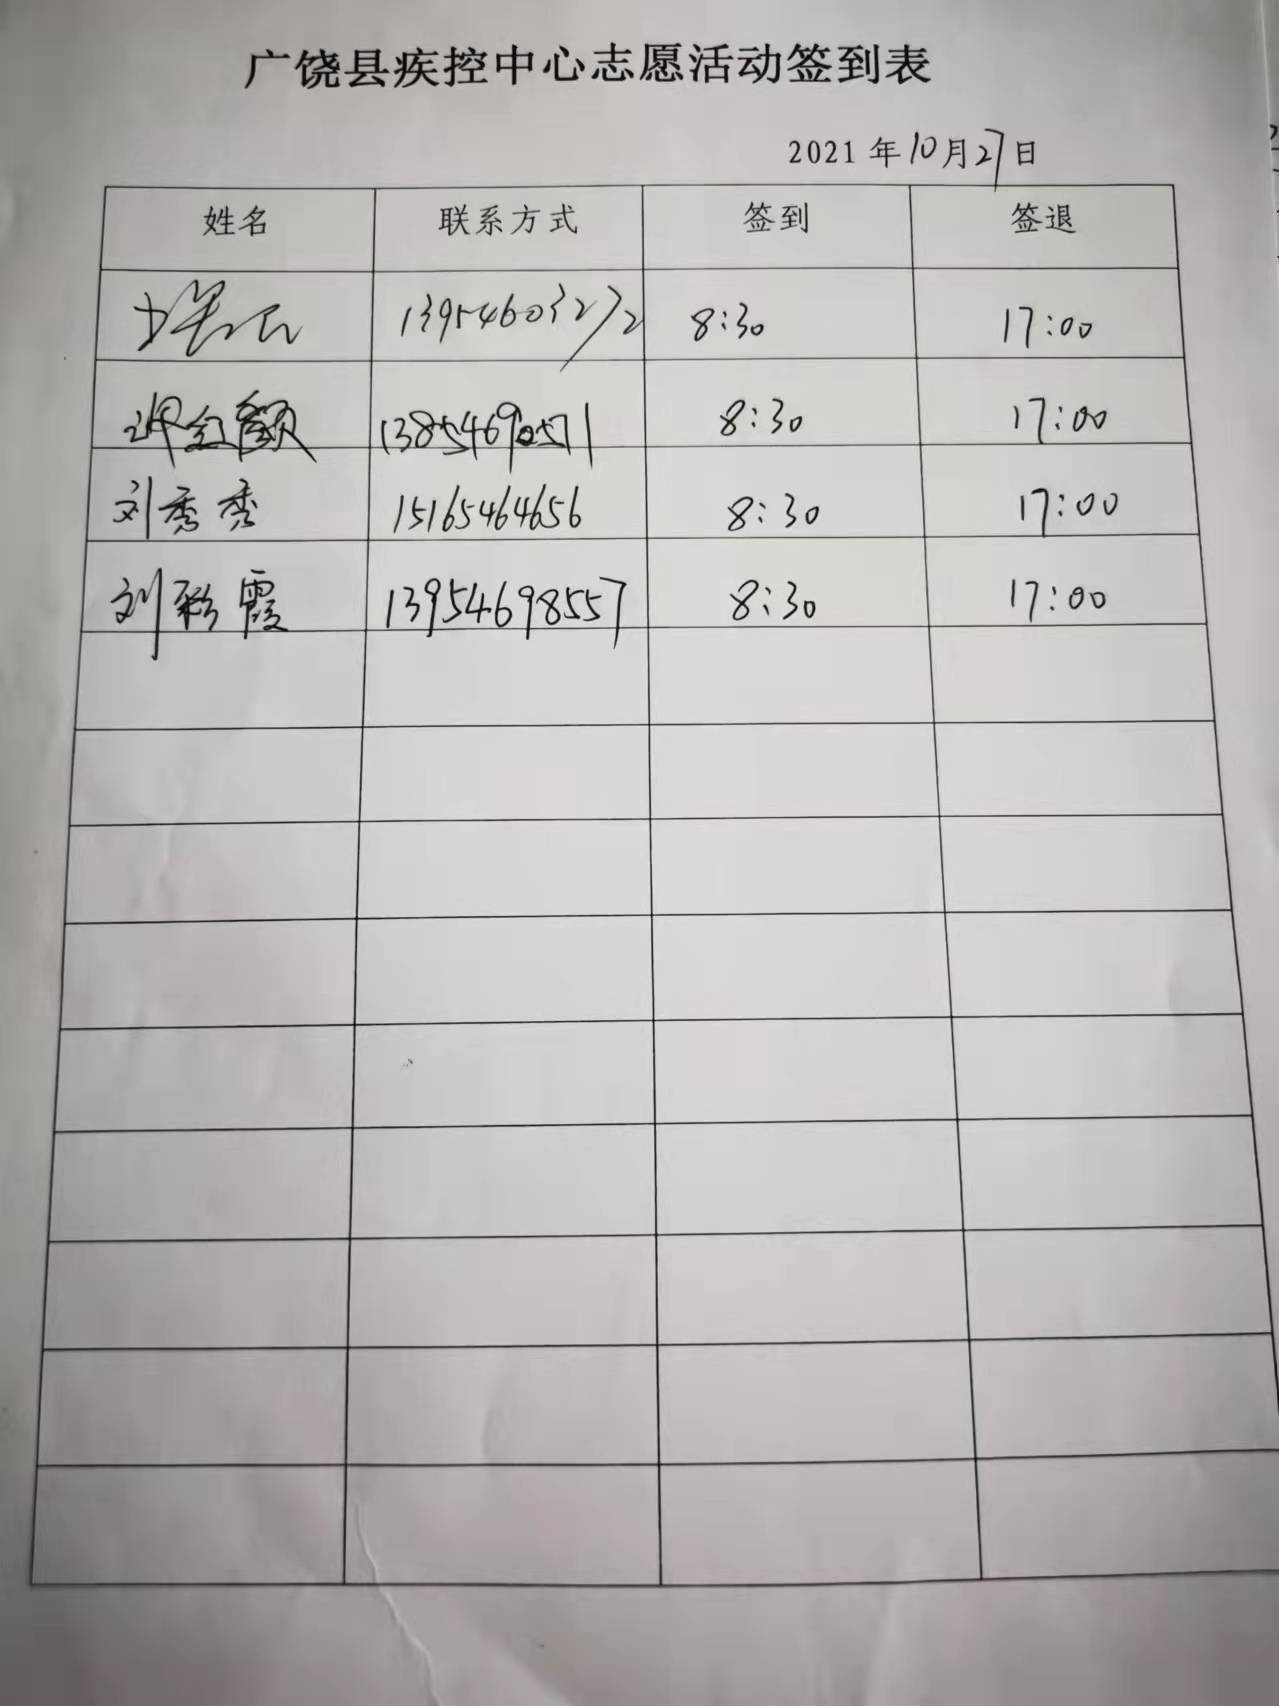 广饶县疾控中心志愿活动签到表
2021年10月27日
姓名 联系方式 签到 签退
13954603272 8:30 17:00
13854690571 8:30 17:00
刘秀秀 15165464656 8:30 17:00
刘彩霞 13954698557 8:30 17:00